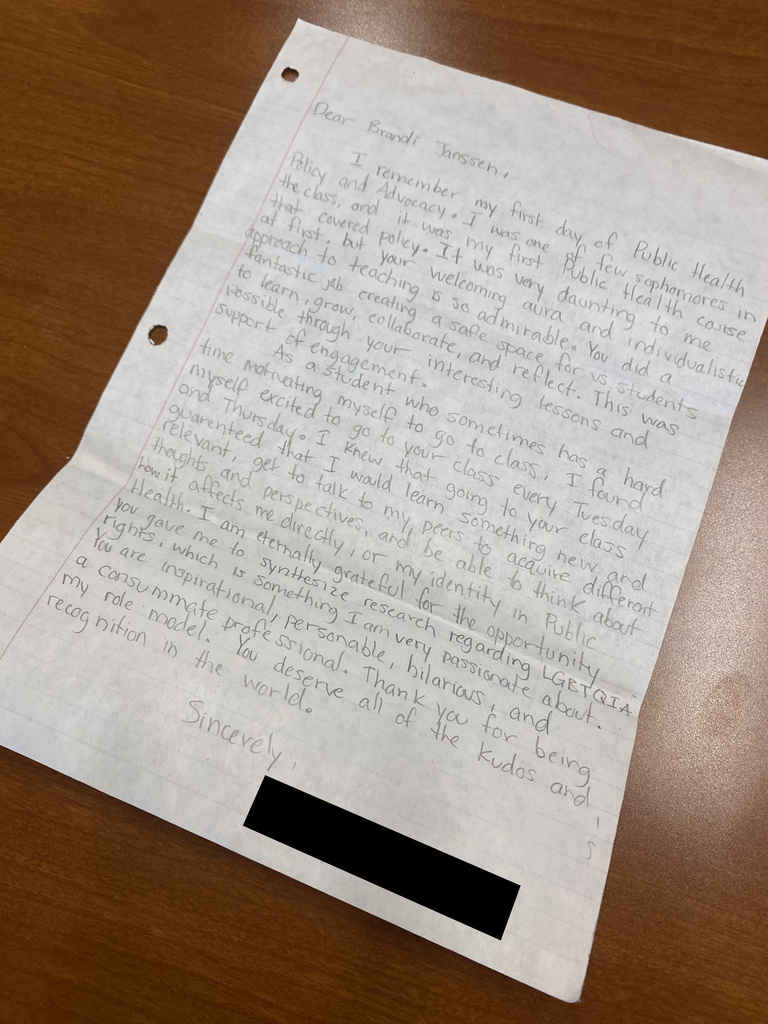 Dear Brandi Janssen,
I remember my first day of Public Health
Policy and Advocacy. I was one of few sophomores in
the class, and it was my first Public Health course
that covered policy. It was very daunting to me
at first, but your welcoming aura and individualistic
approach to teaching is so admirable. You did a
fantastic job creating a safe space for us students
to learn, grow, collaborate, and reflect. This was
possible through your interesting lessons and
support of engagement.
As a student who sometimes has a hard
time motivating myself to go to class, I found
myself excited to go to your class every Tuesday
and Thursday. I knew that going to your class
guarenteed that I would learn something new and
relevant, get to talk to my peers to acquire different
thoughts and perspectives, and be able to think about
how it affects me directly, or my identity in Public
Health. I am eternally grateful for the opportunity
you gave me to synthesize research regarding LGBTQIA
rights, which is something I am very passionate about.
You are inspirational, personable, hilarious, and
a consummate professional. Thank you for being
my role model. You deserve all of the kudos and
recognition in the world.
Sincerely,